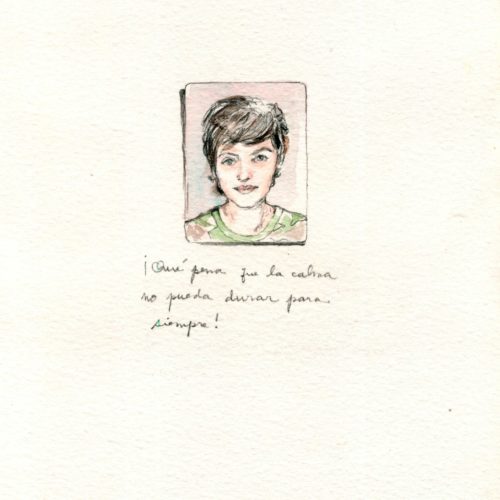 ¡Qué pena que la calma
no pueda durar para
siempre!